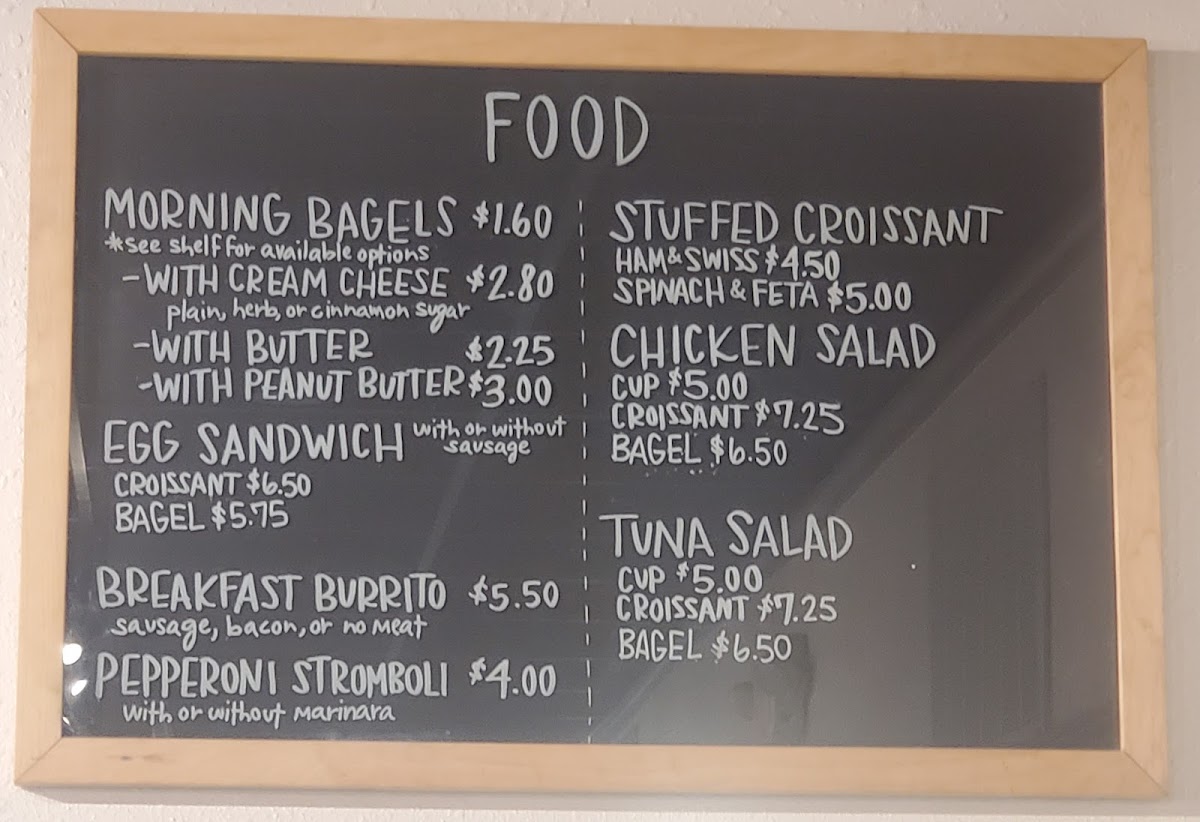 FOOD
MORNING BAGELS $1.60
*see shelf for available options
-WITH CREAM CHEESE $2.80
plain, herb, or cinnamon sugar
-WITH BUTTER $2.25
-WITH PEANUT BUTTER $3.00
EGG SANDWICH with or without
sausage
CROISSANT $6.50
BAGEL $5.75
BREAKFAST BURRITO $5.50
sausage, bacon, or no meat
PEPPERONI STROMBOLI $4.00
with or without marinara
STUFFED CROISSANT
HAM & SWISS $4.50
SPINACH & FETA $5.00
CHICKEN SALAD
CUP $5.00
CROISSANT $7.25
BAGEL $6.50
TUNA SALAD
CUP $5.00
CROISSANT $7.25
BAGEL $6.50